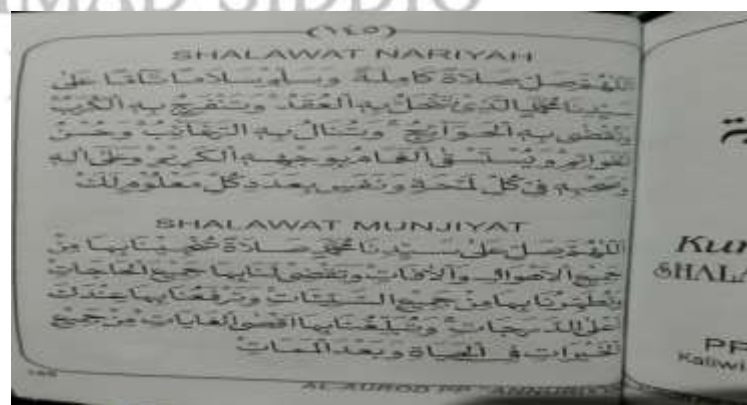 (١٤٥)
SHALAWAT NARIYAH
اللهم صل صلاة كاملة وسلم سلاما تاما على
سيدنا محمد الذي تنحل به العقد وتنفرج به الكرب
وتقضى به الحوائج وتنال به الرغائب وحسن
الخواتم ويستسقى الغمام بوجهه الكريم وعلى اله
وصحبه في كل لمحة ونفس بعدد كل معلوم لك
SHALAWAT MUNJIYAT
اللهم صل على سيدنا محمد صلاة تنجينا بها من
جميع الاهوال والآفات وتقضى لنا بها جميع الحاجات
وتطهرنا بها من جميع السيئات وترفعنا بها عندك
أعلى الدرجات وتبلغنا بها اقصى الغايات من جميع
الخيرات في الحياة وبعد الممات
AL-AUROD PP "ANNURIY
Kur
SHALA
PP
Kaliwi